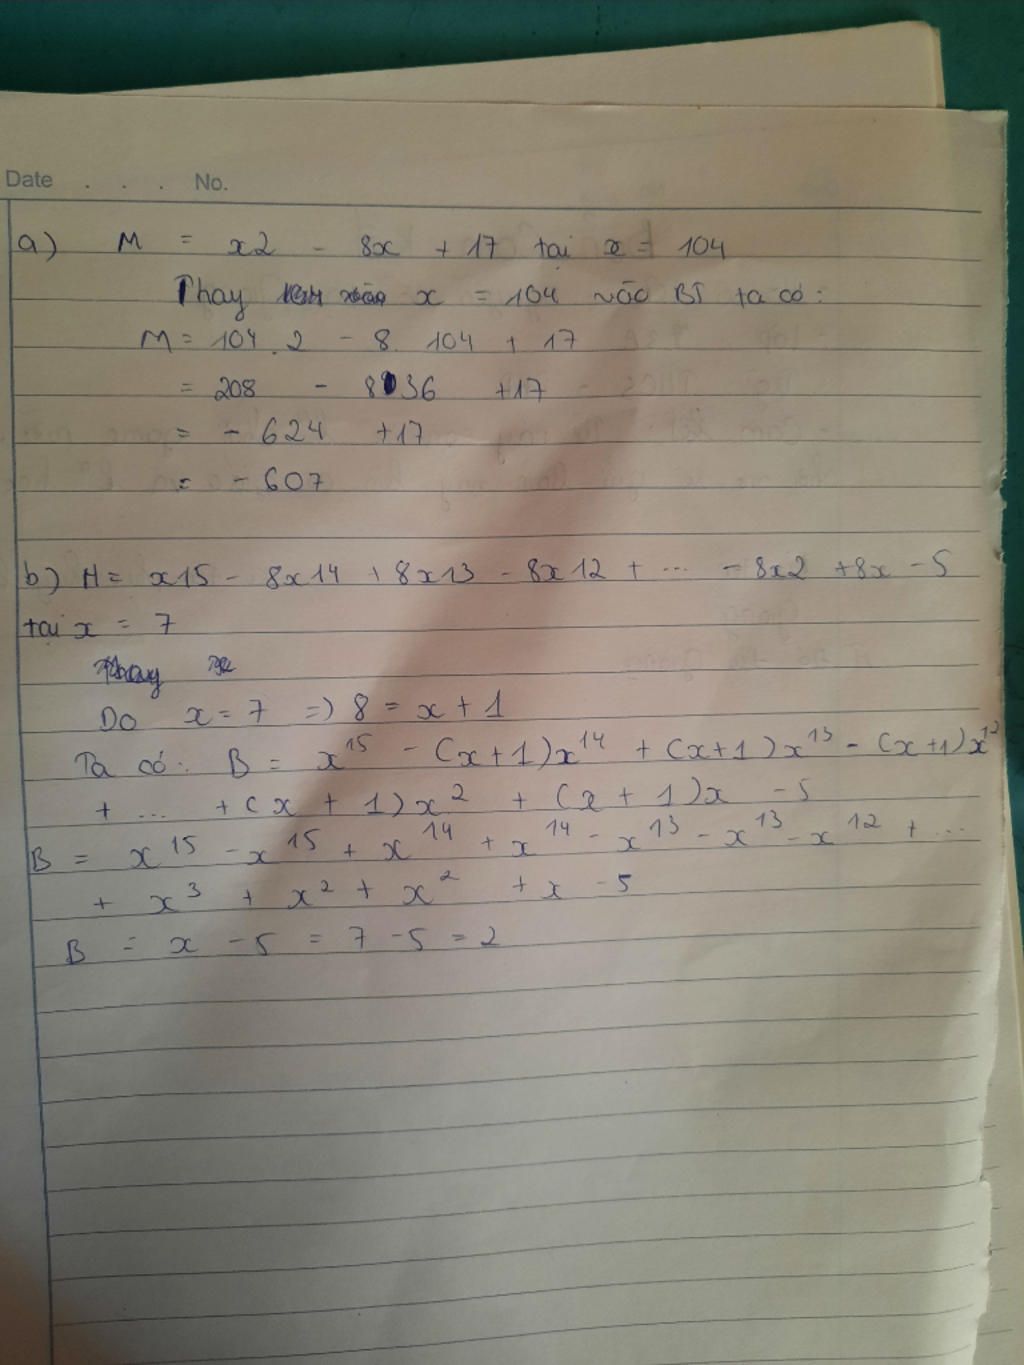 Date . . . No.
a) M = x2 - 8x + 17 tại x = 104
Thay x = 104 vào BT ta có:
M = 104 . 2 - 8 . 104 + 17
= 208 - 836 + 17
= - 624 + 17
= - 607
b) H = x15 - 8x14 + 8x13 - 8x12 + ... - 8x2 + 8x - 5
tại x = 7
Thay x
Do x = 7 => 8 = x + 1
Ta có: B = x¹⁵ - (x+1)x¹⁴ + (x+1)x¹³ - (x+1)x¹²
+ ... + (x + 1)x² + (x + 1)x - 5
B = x¹⁵ - x¹⁵ + x¹⁴ + x¹⁴ - x¹³ - x¹³ - x¹² + ...
+ x³ + x² + x² + x - 5
B = x - 5 = 7 - 5 = 2